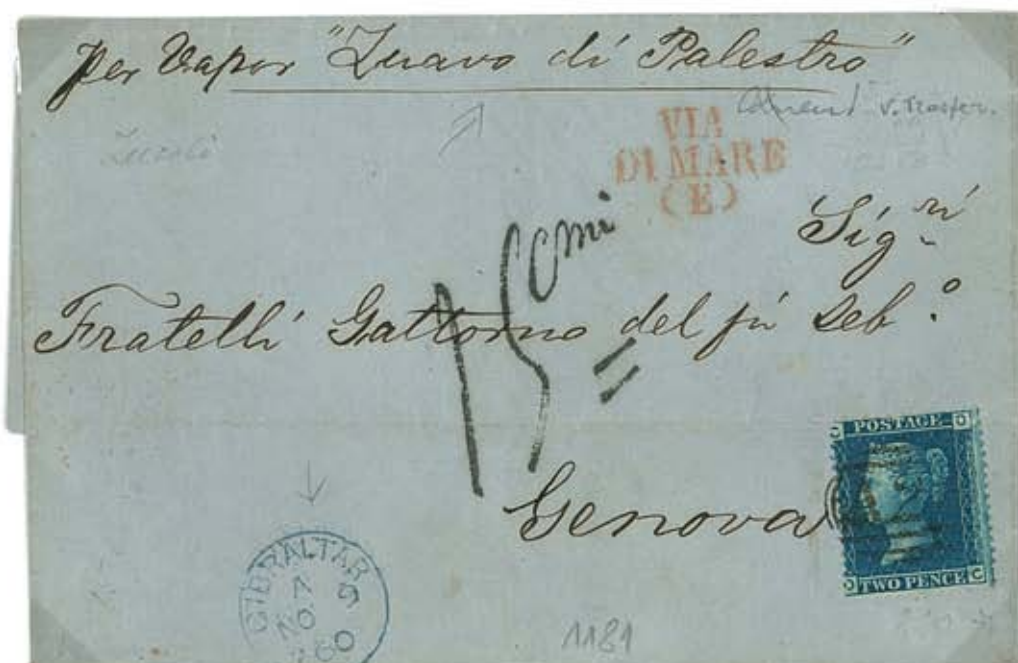 Per Vapor "Zuavo di Palestro"
V. Trasfer.
VIA
DI MARE
(E)
15 Cmi
Sig.ri
Fratelli Gattorno del fu Seb.o
Genova
POSTAGE
TWO PENCE
GIBRALTAR
A
NO 9
60
1181